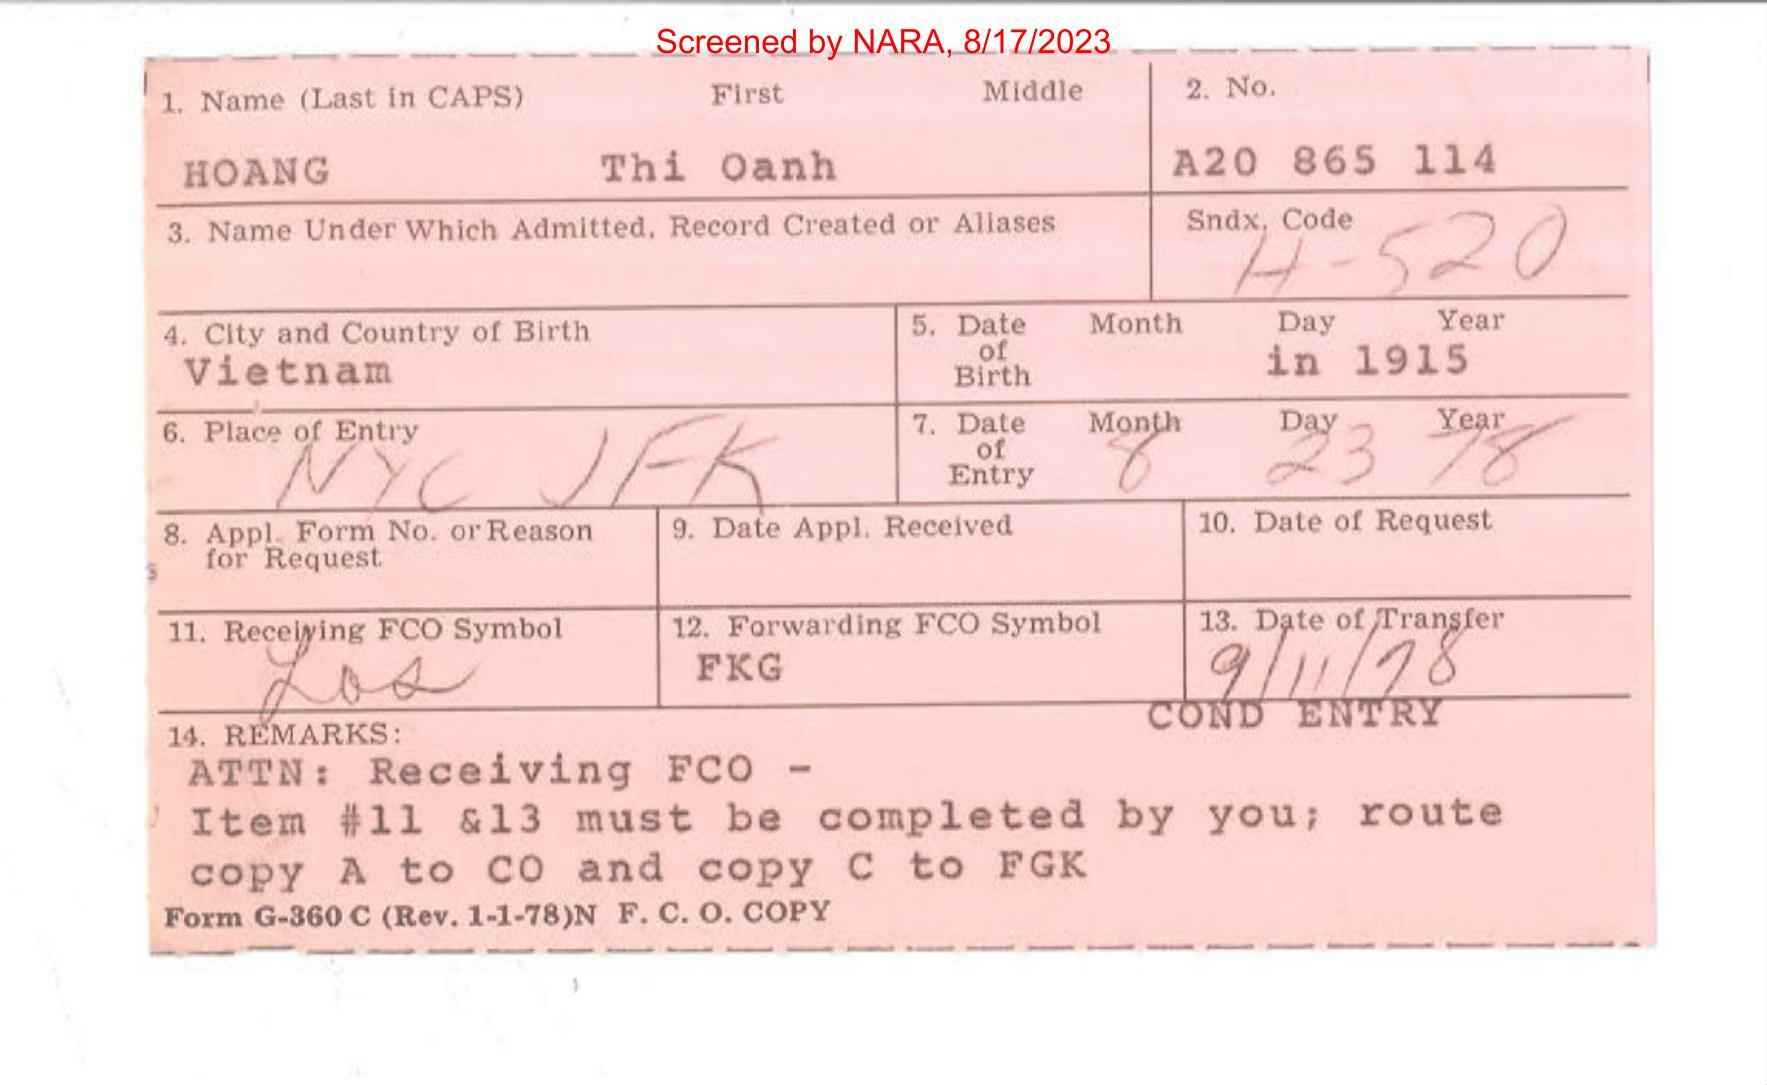 Screened by NARA, 8/17/2023
1. Name (Last in CAPS) First Middle
2. No.
HOANG Thi Oanh
A20 865 114
3. Name Under Which Admitted, Record Created or Aliases
Sndx. Code
H-520
4. City and Country of Birth
Vietnam
5. Date of Birth Month Day Year
in 1915
6. Place of Entry
NYC JFK
7. Date of Entry Month Day Year
8 23 78
8. Appl. Form No. or Reason
for Request
9. Date Appl. Received
10. Date of Request
11. Receiving FCO Symbol
Los
12. Forwarding FCO Symbol
FKG
13. Date of Transfer
9/11/78
COND ENTRY
14. REMARKS:
ATTN: Receiving FCO -
Item #11 &13 must be completed by you; route
copy A to CO and copy C to FGK
Form G-360 C (Rev. 1-1-78)N F. C. O. COPY